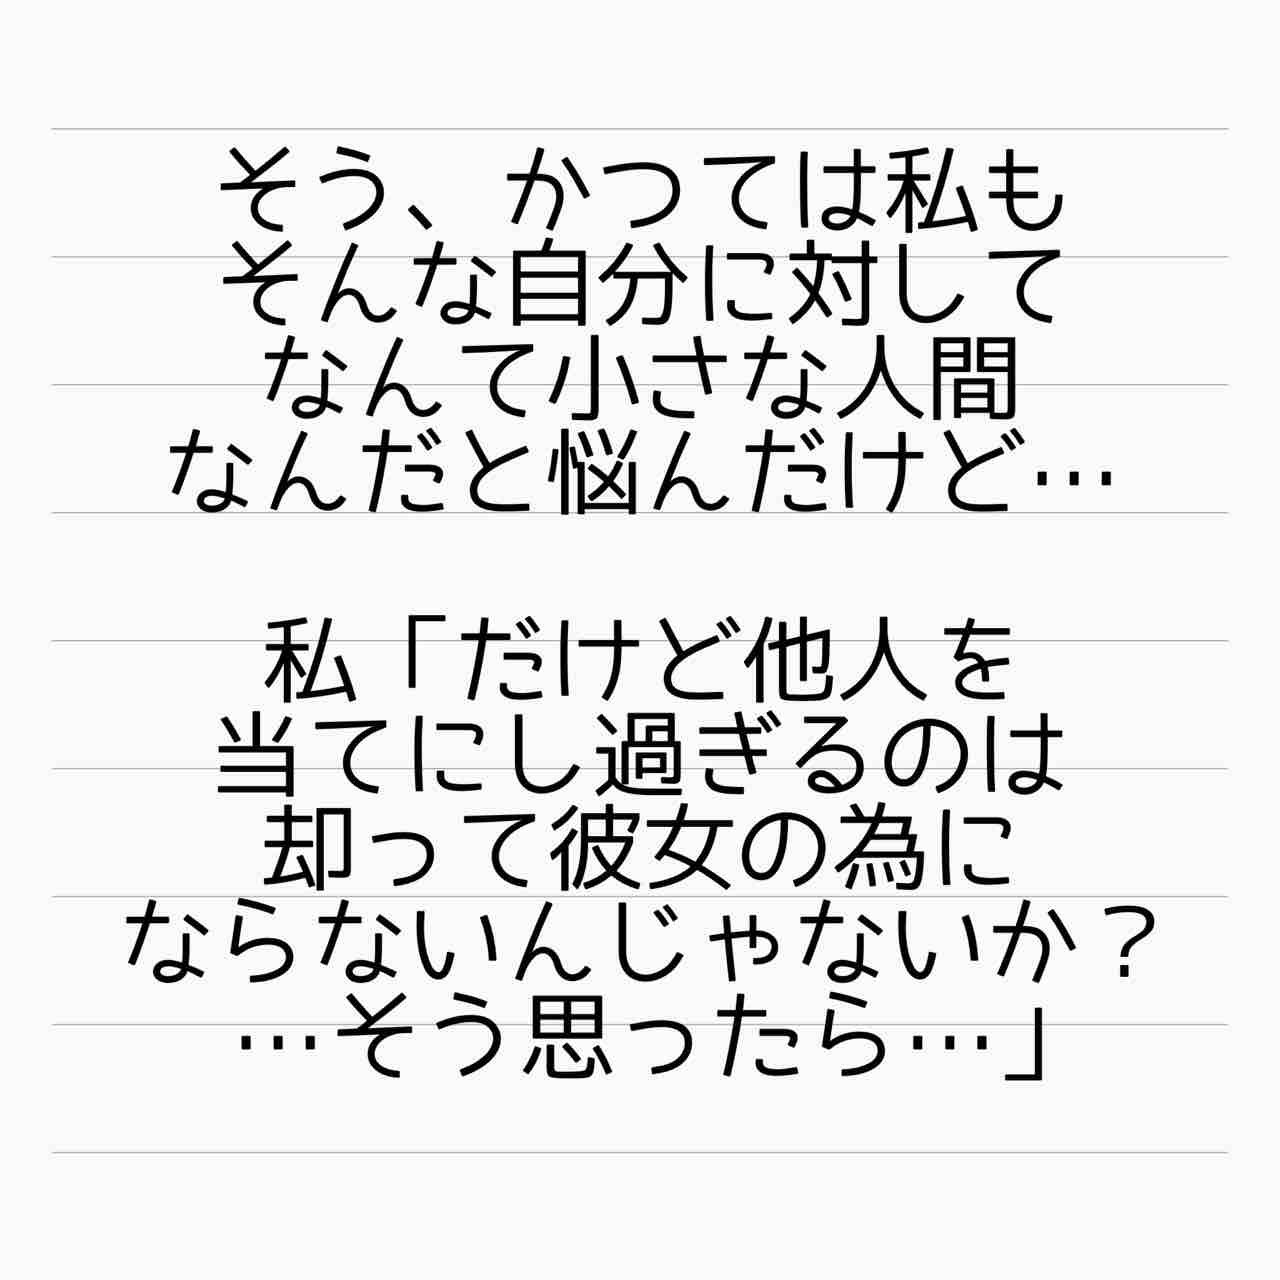 そう、かつては私も
そんな自分に対して
なんて小さな人間
なんだと悩んだけど…
私「だけど他人を
当てにし過ぎるのは
却って彼女の為に
ならないんじゃないか？
…そう思ったら…」